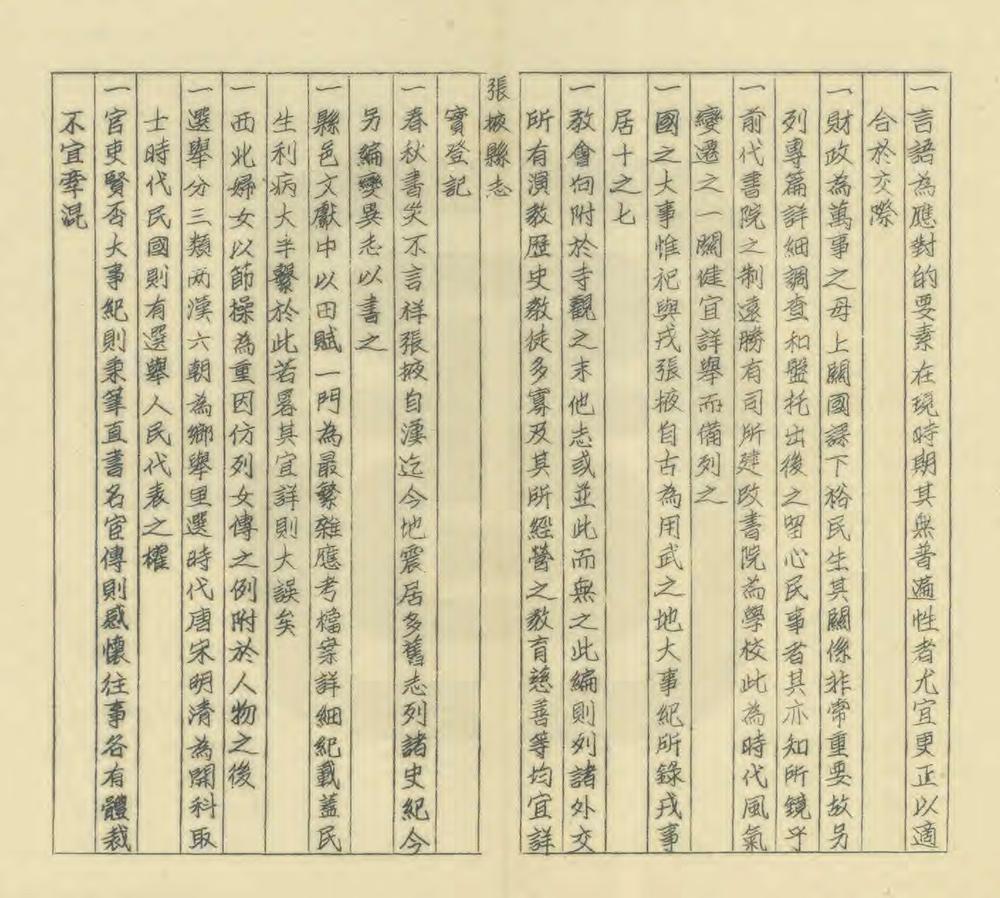 一言語為應對的要素在現時期其無普遍性者尤宜更正以適
合於交際
一財政為萬事之母上關國課下裕民生其關係非常重要故另
列專篇詳細調查和盤托出後之留心民事者其亦知所鏡乎
一前代書院之制遠勝有司所建改書院為學校此為時代風氣
變遷之一關健宜詳舉而備列之
一國之大事惟祀與戎張掖自古為用武之地大事紀所錄戎事
居十之七
一教會向附於寺觀之末他志或並此而無之此編則列諸外交
所有演教歷史教徒多寡及其所經營之教育慈善等均宜詳
張掖縣志
實登記
一春秋書災不言祥張掖自漢迄今地震居多舊志列諸史紀今
另編變異志以書之
一縣邑文獻中以田賦一門為最繁雜應考檔案詳細紀載蓋民
生利病大半繫於此若畧其宜詳則大誤矣
一西北婦女以節操為重因仿列女傳之例附於人物之後
一選舉分三類两漢六朝為鄉舉里選時代唐宋明清為開科取
士時代民國則有選舉人民代表之權
一官吏賢否大事紀則秉筆直書名宦傳則感懷往事各有體裁
不宜牽混